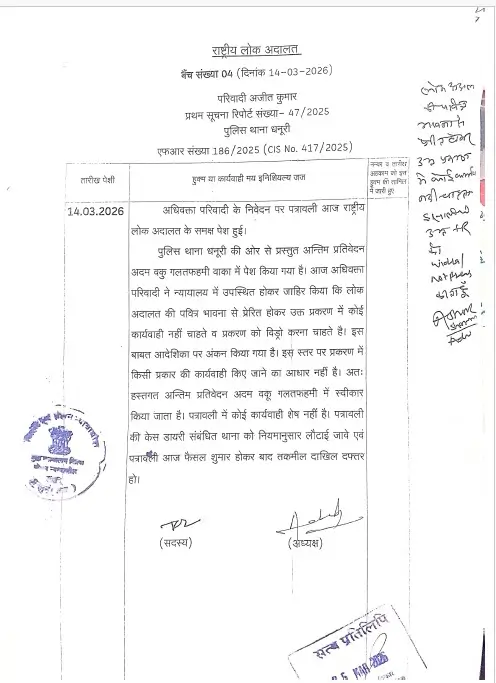 राष्ट्रीय लोक अदालत
बैंच संख्या 04 (दिनांक 14-03-2026)
परिवादी अजीत कुमार
प्रथम सूचना रिपोर्ट संख्या- 47/2025
पुलिस थाना धनूरी
एफआर संख्या 186/2025 (CIS No. 417/2025)
तारीख पेशी
हुक्म या कार्यवाही मय इनिशियल्य जज
नम्बर व तारीख
अहकाम जो इस
हुक्म की तामिल
में जारी हुए
14.03.2026
अधिवक्ता परिवादी के निवेदन पर पत्रावली आज राष्ट्रीय
लोक अदालत के समक्ष पेश हुई।
पुलिस थाना धनूरी की ओर से प्रस्तुत अन्तिम प्रतिवेदन
अदम वकु गलतफहमी वाका में पेश किया गया है। आज अधिवक्ता
परिवादी ने न्यायालय में उपस्थित होकर जाहिर किया कि लोक
अदालत की पवित्र भावना से प्रेरित होकर उक्त प्रकरण में कोई
कार्यवाही नहीं चाहते व प्रकरण को विड्रो करना चाहते है। इस
बाबत आदेशिका पर अंकन किया गया है। इस स्तर पर प्रकरण में
किसी प्रकार की कार्यवाही किए जाने का आधार नहीं है। अतः
हस्तगत अन्तिम प्रतिवेदन अदम वकू गलतफहमी में स्वीकार
किया जाता है। पत्रावली में कोई कार्यवाही शेष नहीं है। पत्रावली
की केस डायरी संबंधित थाना को नियमानुसार लौटाई जावे एवं
पत्रावली आज फैसल शुमार होकर बाद तकमील दाखिल दफ्तर
हो।
(सदस्य)
(अध्यक्ष)
लोक अदालत
की पवित्र
भावना से
प्रकरण
में कोई कार्य
नही चाहता
इसलिये
उक्त FR
को
withdraw/
not press
करता हूँ
सत्य प्रतिलिपि
MAR 2026